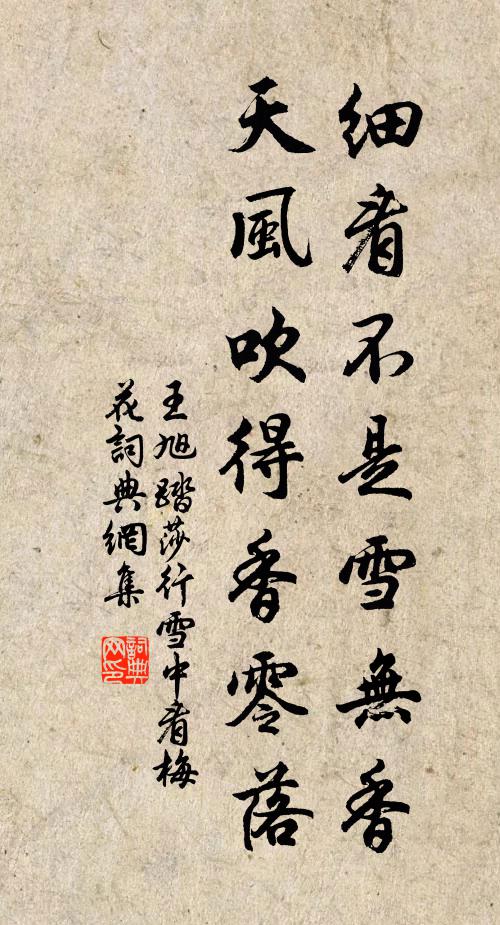 細看不是雪無香
天風吹得香零落
王旭踏莎行雪中看梅
花詞典網集
詞典
网印